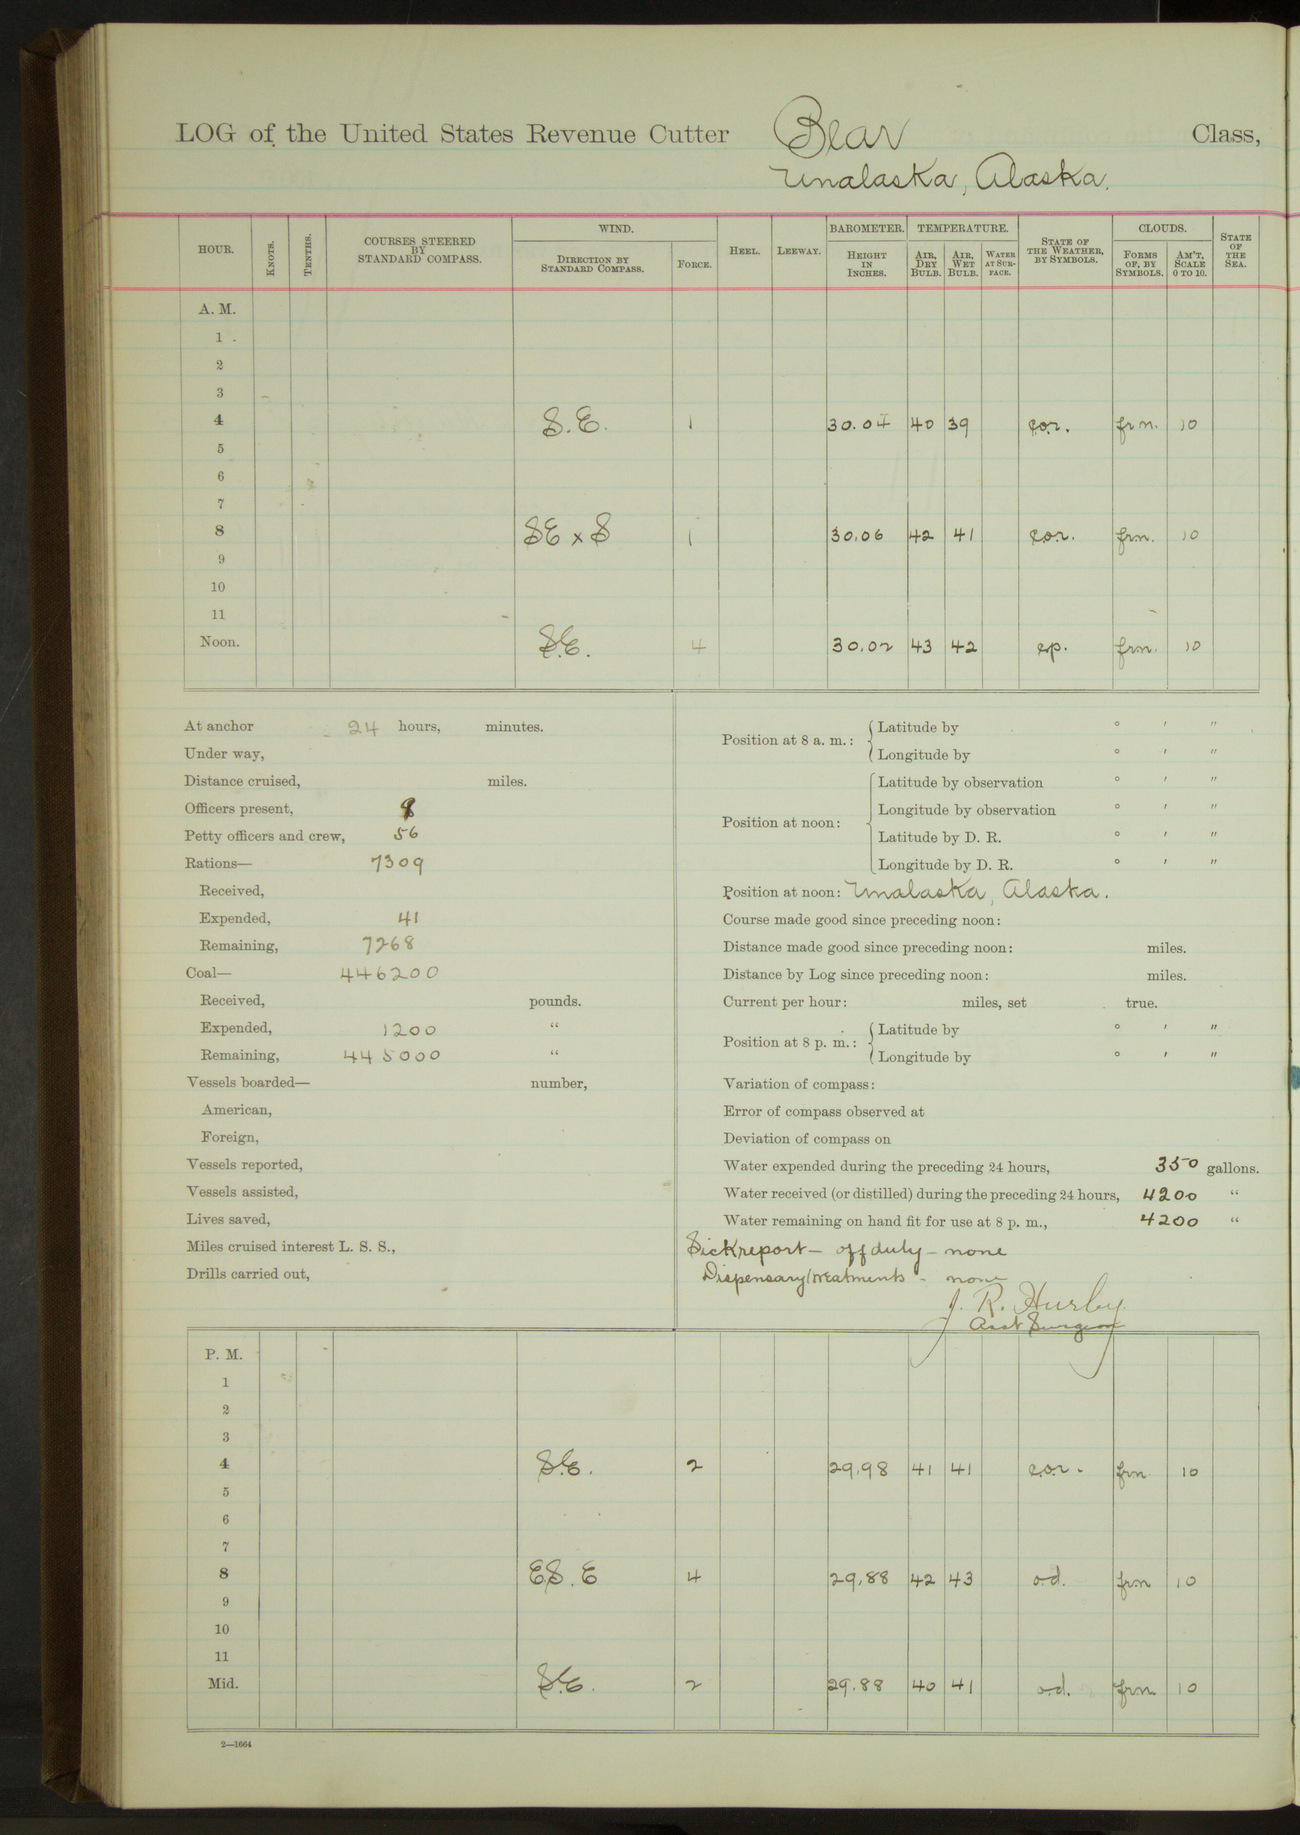 LOG of the United States Revenue Cutter Bear Class,
Unalaska, Alaska.
HOUR. KNOTS. TENTHS. COURSES STEERED BY STANDARD COMPASS. WIND. DIRECTION BY STANDARD COMPASS. FORCE. HEEL. LEEWAY. BAROMETER. HEIGHT IN INCHES. TEMPERATURE. AIR, DRY BULB. AIR, WET BULB. WATER AT SURFACE. STATE OF THE WEATHER, BY SYMBOLS. CLOUDS. FORMS OF, BY SYMBOLS. AM'T, SCALE 0 TO 10. STATE OF THE SEA.
A. M.
1
2
3
4 S.E. 1 30.04 40 39 e.o.r. frn. 10
5
6
7
8 SE x S 1 30.06 42 41 e.o.r. frn. 10
9
10
11
Noon. S.E. 4 30.02 43 42 ep. frn. 10
At anchor 24 hours, minutes.
Under way,
Distance cruised, miles.
Officers present, 8
Petty officers and crew, 56
Rations— 7309
Received,
Expended, 41
Remaining, 7268
Coal— 446200
Received, pounds.
Expended, 1200 "
Remaining, 445000 "
Vessels boarded— number,
American,
Foreign,
Vessels reported,
Vessels assisted,
Lives saved,
Miles cruised interest L. S. S.,
Drills carried out,
Position at 8 a. m.: Latitude by ° ′ ″
Longitude by ° ′ ″
Position at noon: Latitude by observation ° ′ ″
Longitude by observation ° ′ ″
Latitude by D. R. ° ′ ″
Longitude by D. R. ° ′ ″
Position at noon: Unalaska, Alaska.
Course made good since preceding noon:
Distance made good since preceding noon: miles.
Distance by Log since preceding noon: miles.
Current per hour: miles, set true.
Position at 8 p. m.: Latitude by ° ′ ″
Longitude by ° ′ ″
Variation of compass:
Error of compass observed at
Deviation of compass on
Water expended during the preceding 24 hours, 350 gallons.
Water received (or distilled) during the preceding 24 hours, 4200 "
Water remaining on hand fit for use at 8 p. m., 4200 "
Sick report — off duty — none
Dispensary treatments - none
J. R. Hurley
Asst Surgeon
P. M.
1
2
3
4 S.E. 2 29.98 41 41 e.o.r. frn 10
5
6
7
8 ES.E 4 29.88 42 43 o.d. frn 10
9
10
11
Mid. S.E. 2 29.88 40 41 o.d. frn 10
2—1664